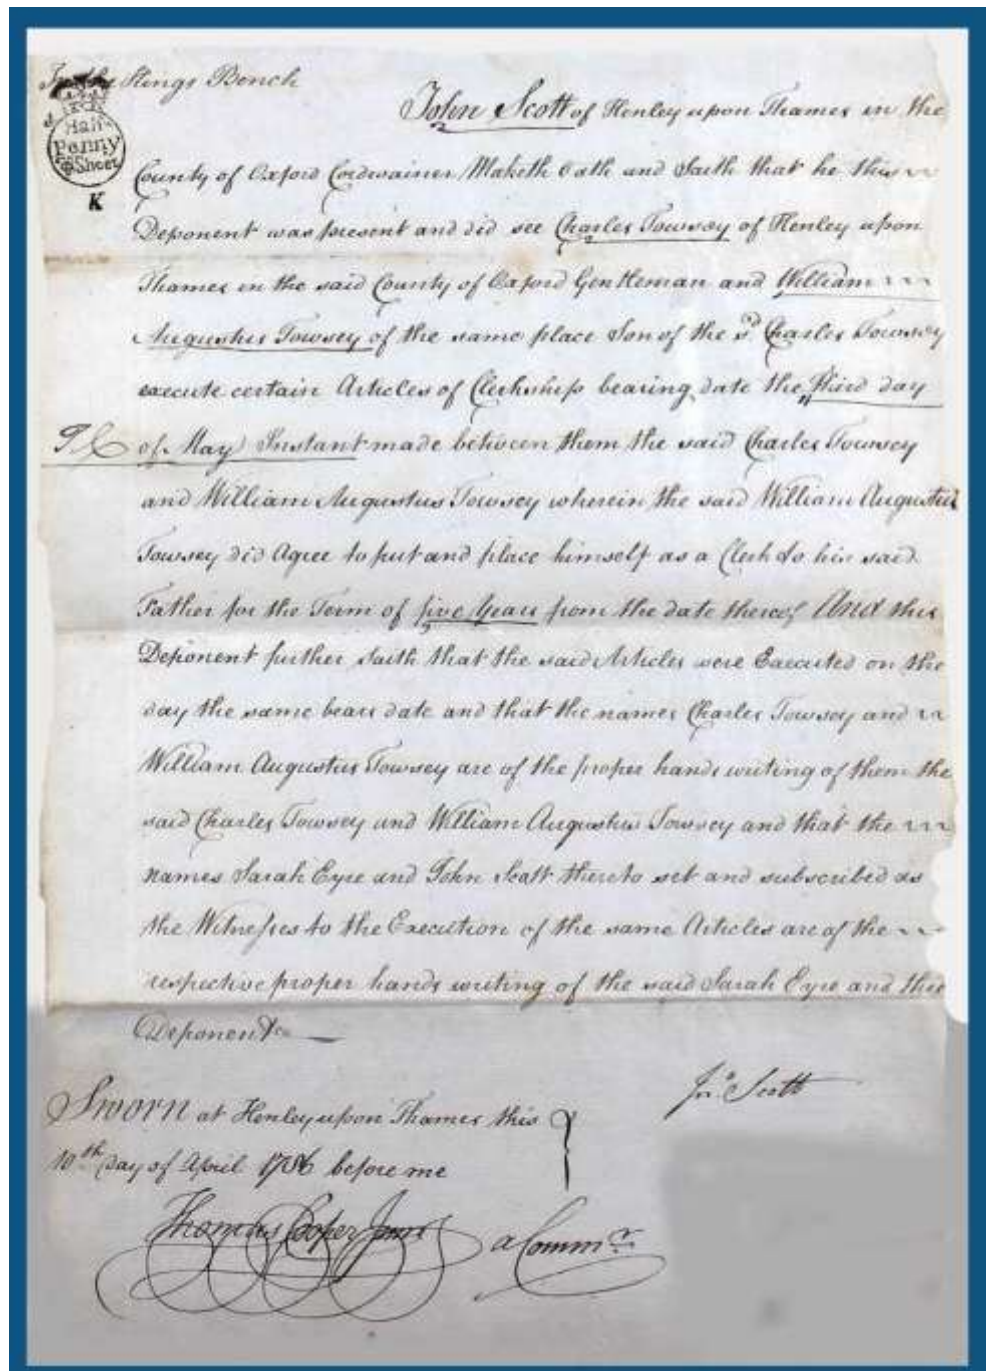 In the Kings Bench
Half
Penny
Sheet
K
John Scott of Henley upon Thames in the
County of Oxford Cordwainer Maketh Oath and Saith that he this
Deponent was present and did see Charles Towsey of Henley upon
Thames in the said County of Oxford Gentleman and William
Augustus Towsey of the same place Son of the sd Charles Towsey
execute certain Articles of Clerkship bearing date the third day
of May Instant made between them the said Charles Towsey
and William Augustus Towsey wherein the said William Augustus
Towsey did Agree to put and place himself as a Clerk to his said
Father for the Term of five Years from the date thereof And this
Deponent further saith that the said Articles were Executed on the
day the same bears date and that the names Charles Towsey and
William Augustus Towsey are of the proper hands writing of them the
said Charles Towsey and William Augustus Towsey and that the
names Sarah Eyre and John Scott thereto set and subscribed as
the Witnesses to the Execution of the same Articles are of the
respective proper hands writing of the said Sarah Eyre and this
Deponent
Jno. Scott
Sworn at Henley upon Thames this
10th day of April 1786 before me
Thomas Cooper Junr
a Commr.